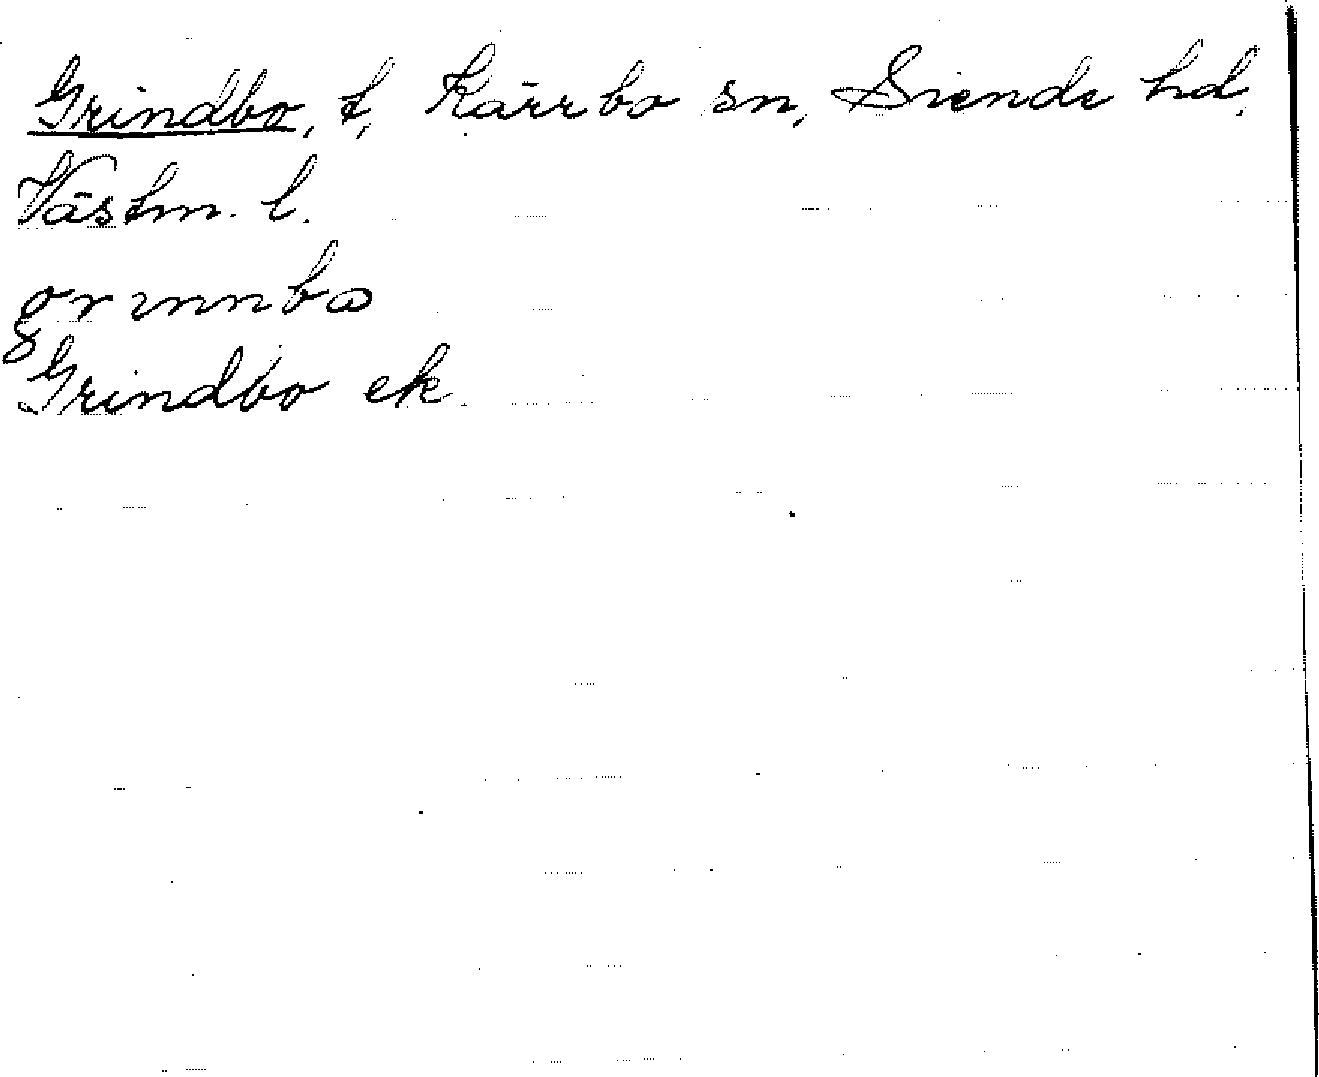 Grindbo, t, Kärrbo sn, Siende hd.
Västm. l.
grinnbo
Grindbo ek.